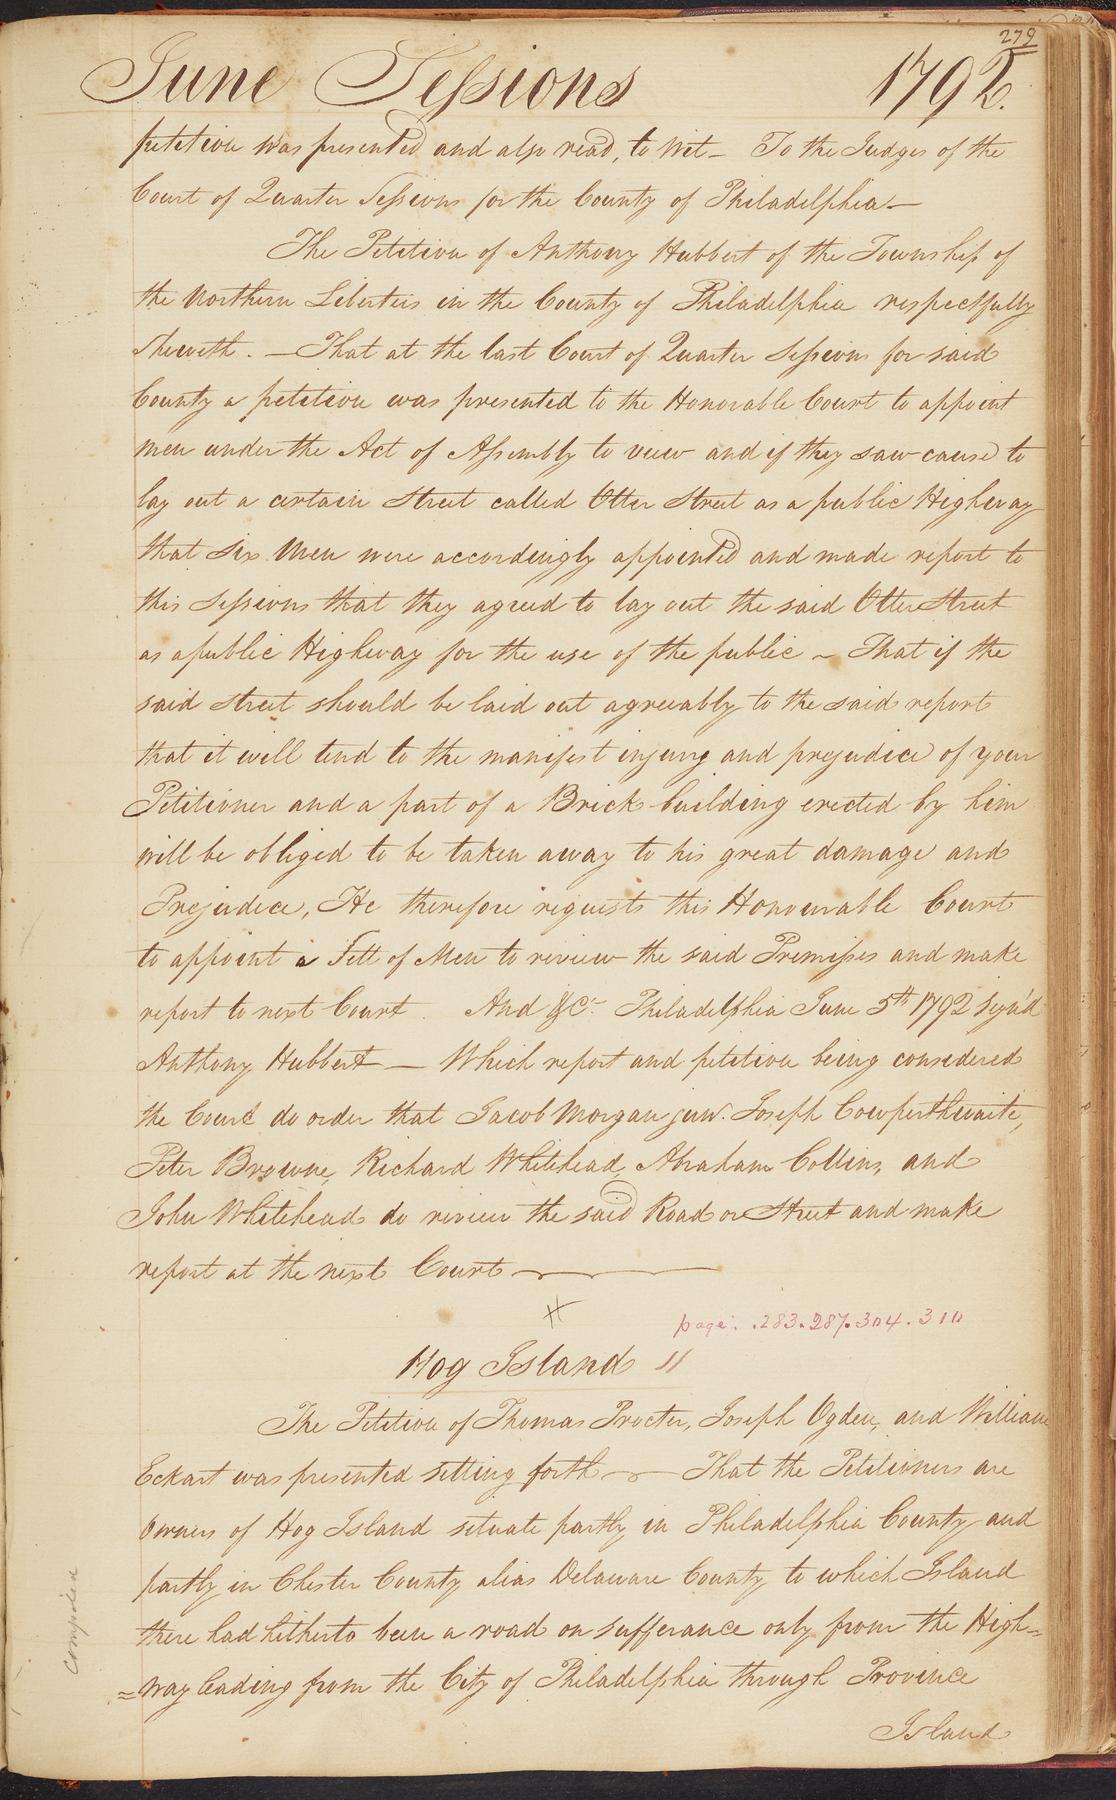 279
June Sessions 1792.
petition was presented and also read, to Wit_ To the Judges of the
Court of Quarter Sessions for the County of Philadelphia_
The Petition of Anthony Hubbert of the Township of
the Northern Liberties in the County of Philadelphia respectfully
Sheweth. _ That at the last Court of Quarter Sessions for said
County a petition was presented to the Honorable Court to appoint
men under the Act of Assembly to view and if they saw cause to
lay out a certain Street called Otter Street as a public Highway
that six Men were accordingly appointed and made report to
this Sessions that they agreed to lay out the said Otter Street
as a public Highway for the use of the public ~ That if the
said street should be laid out agreeably to the said report
that it will tend to the manifest injury and prejudice of your
Petitioner and a part of a Brick building erected by him
will be obliged to be taken away to his great damage and
Prejudice, He therefore requests this Honourable Court
to appoint a Sett of Men to review the said Premises and make
report to next Court. And &c. Philadelphia June 5th 1792 Sign'd
Anthony Hubbert _ Which report and petition being considered
the Court do order that Jacob Morgan jun. Joseph Cowperthwaite,
Peter Browne, Richard Whitehead, Abraham Collins, and
John Whitehead do review the said Road or Street and make
report at the next Court
page. .283.287.304.310
Hog Island //
The Petition of Thomas Procter, Joseph Ogden, and William
Eckart was presented setting forth _ That the Petitioners are
Owners of Hog Island situate partly in Philadelphia County and
partly in Chester County alias Delaware County to which Island
there had hitherto been a road on sufferance only from the High=
=way leading from the City of Philadelphia through Province
Island
Compared